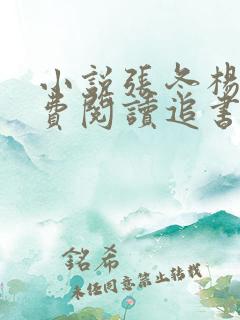 小說張冬楊
費閱讀追書
銘希
未經同意禁止轉載